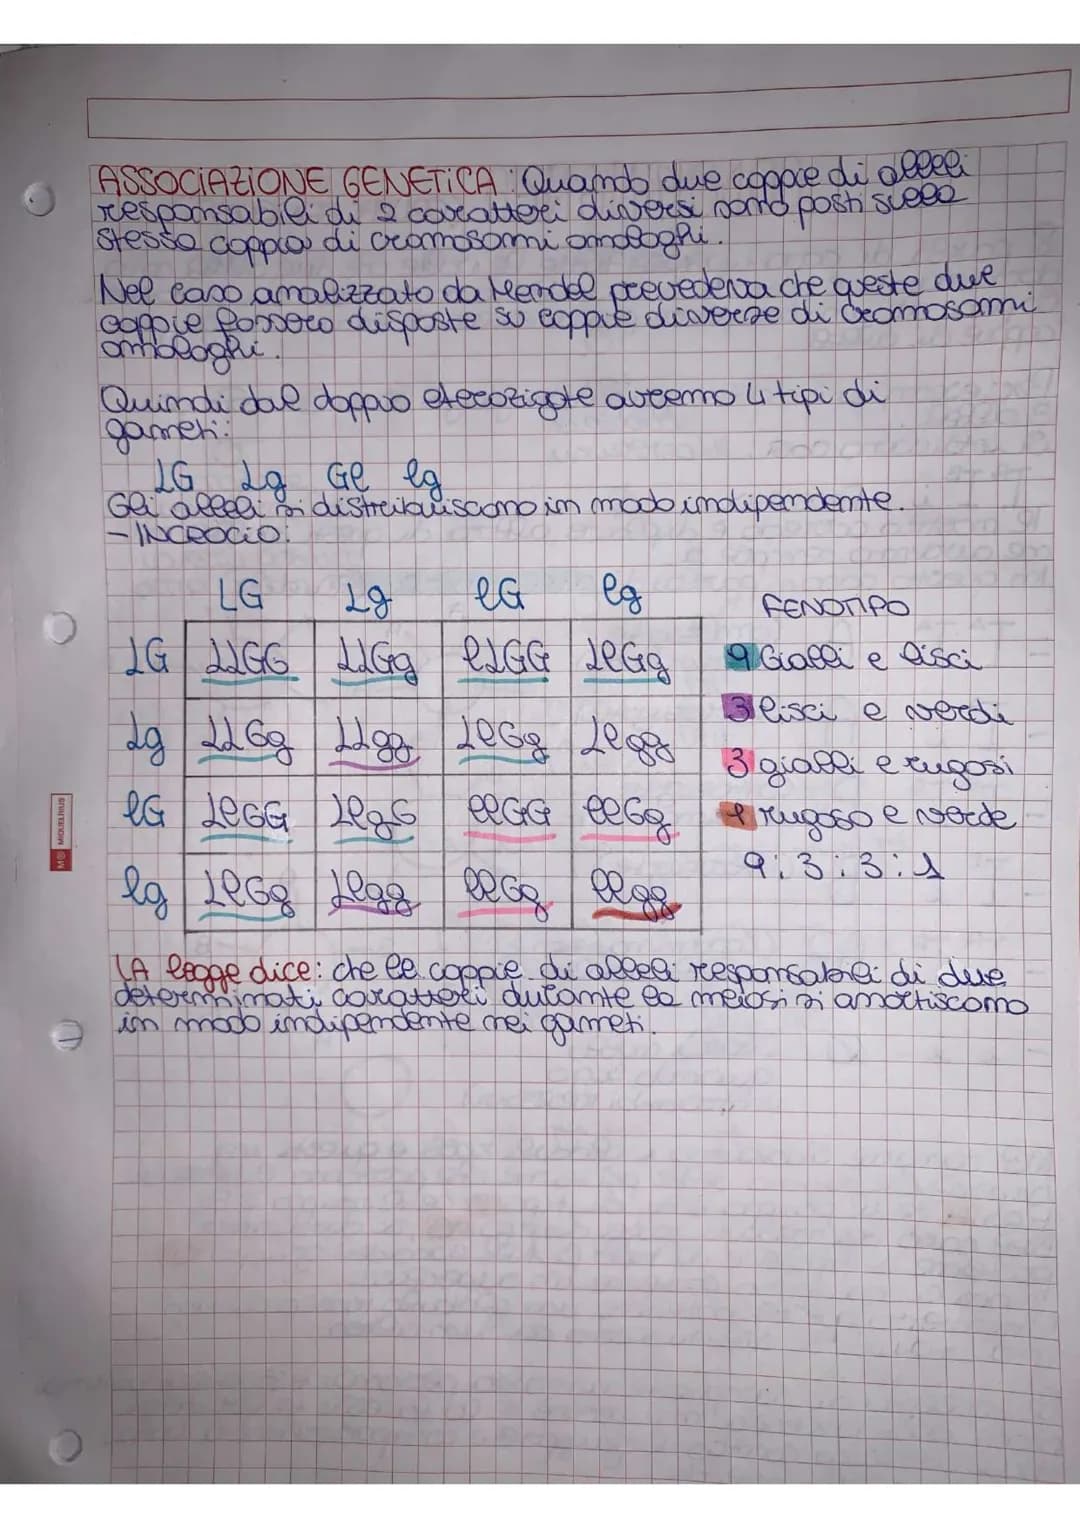 ASSOCIAZIONE GENETICA: Quando due coppie di alleli
responsabili di 2 caratteri diversi sono posti sulla
stessa coppia di cromosomi omologhi.
Nel caso analizzato da Mendel prevedeva che queste due
coppie fossero disposte su coppie diverse di cromosomi
omologhi.
Quindi dal doppio eterozigote avremo 4 tipi di
gameti:
LG Lg Gl lg
Gli alleli si distribuiscono in modo indipendente.
- INCROCIO:
LG Lg lG lg
FENOTIPO
LG LLGG LLGg lLGG LlGg
9 Gialli e lisci
3 lisci e verdi
Lg LLGg LLgg LlGg Llgg
3 gialli e rugosi
lG LlGG LlgG llGG llGg
1 rugoso e verde
9:3:3:1
lg LlGg Llgg llGg llgg
LA legge dice: che le coppie di alleli responsabili di due
determinati caratteri durante la meiosi si amortiscono
in modo indipendente nei gameti.
MIQUELRIUS